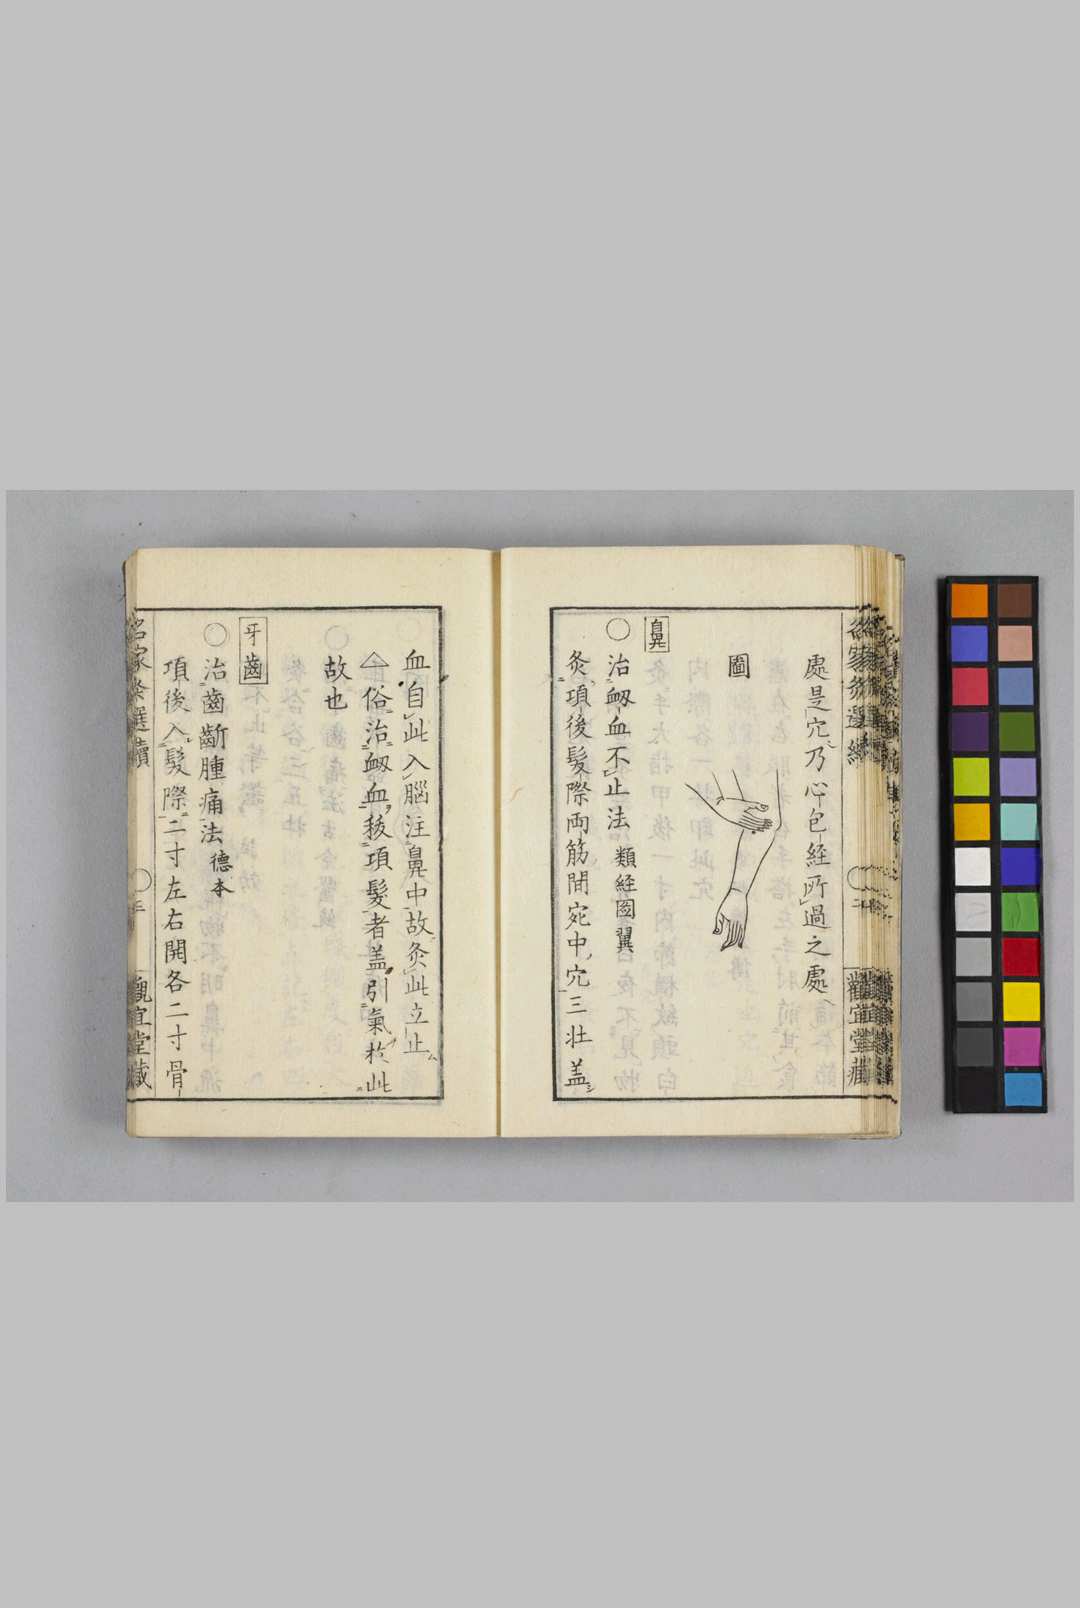 處是穴乃心包経所過之處
圖
鼻
○治衂血不止法 類経圖翼
灸項後髮際両筋間宛中穴三壮盖
血自此入腦注鼻中故灸此立止
△俗治衂血,䅵項髮者盖引氣於此
故也
牙齒
○治齒齗腫痛法 德本
項後入髮際二寸左右開各二寸骨
名家灸選續
○
三
觀宜堂藏